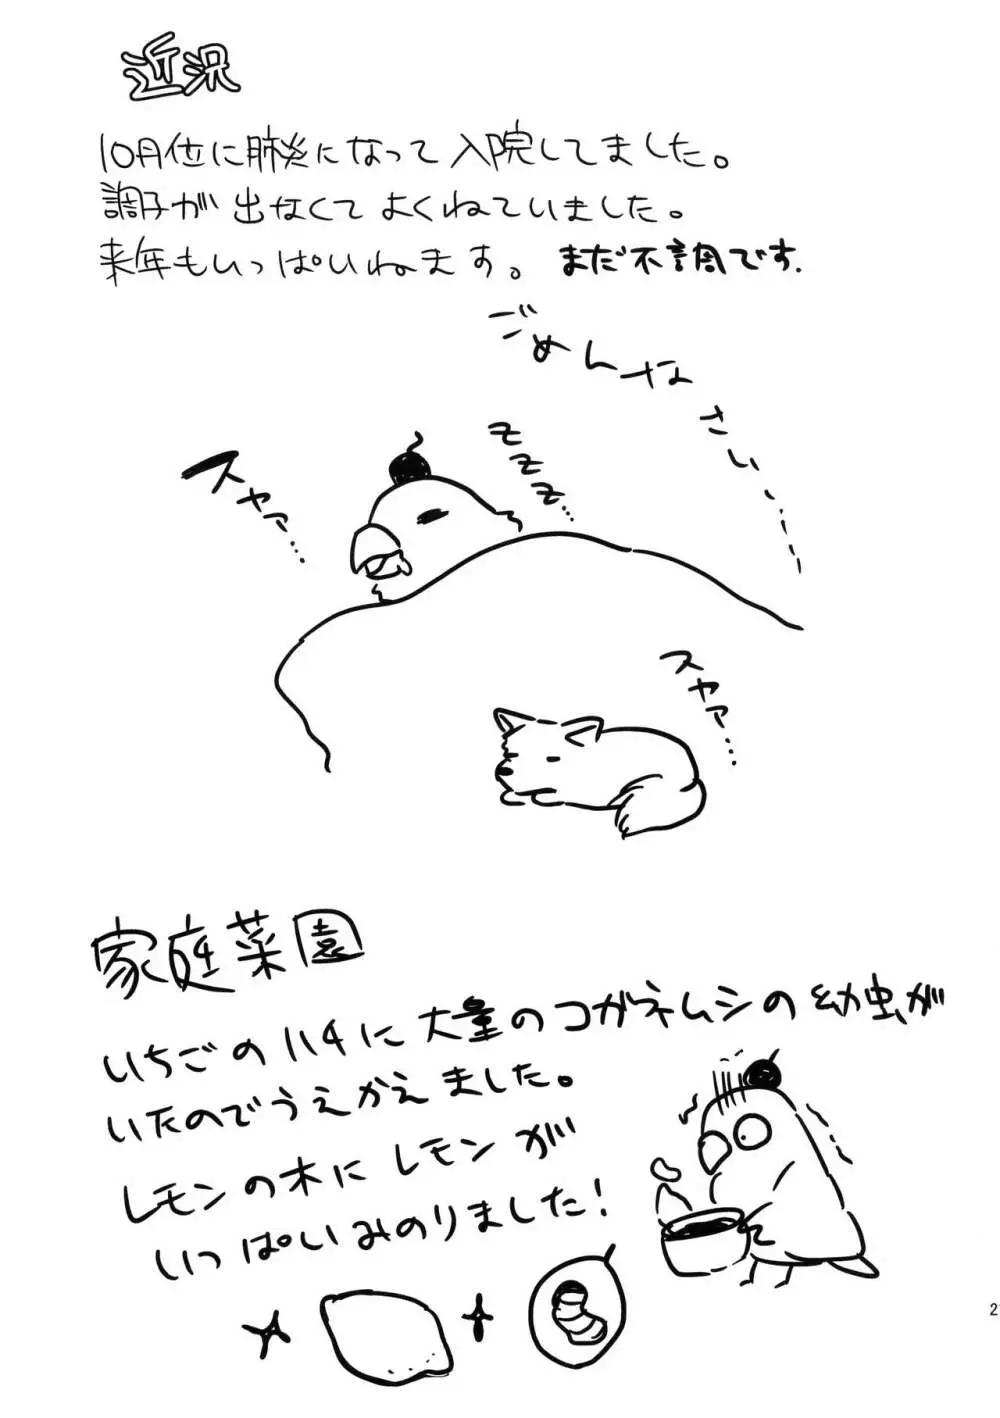 近況
10月位に肺炎になって入院してました。
調子が出なくてよくねていました。
来年もいっぱいねます。まだ不調です.
ごめんなさい…
スヤァ…
zzz…
スヤァ…
家庭菜園
いちごのハチに大量のコガネムシの幼虫が
いたのでうえかえました。
レモンの木にレモンが
いっぱいみのりました!
2